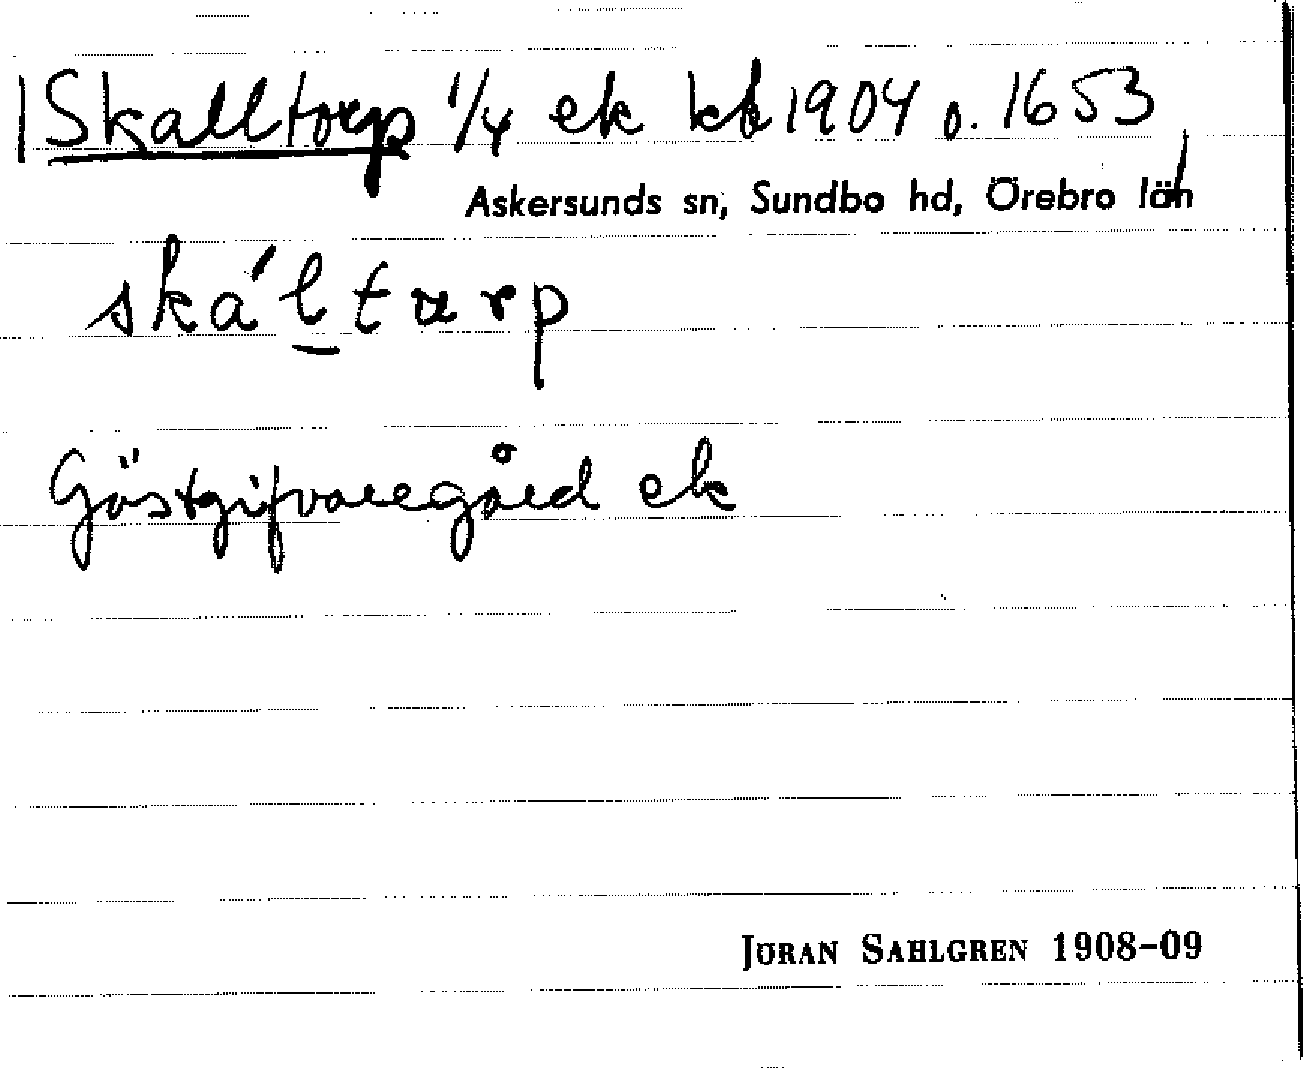 Skalltorp 1/4 ek kb 1904 o. 1653
Askersunds sn, Sundbo hd, Örebro län
ska´ltarp
Gästgifvaregård ek
JÖRAN SAHLGREN 1908-09